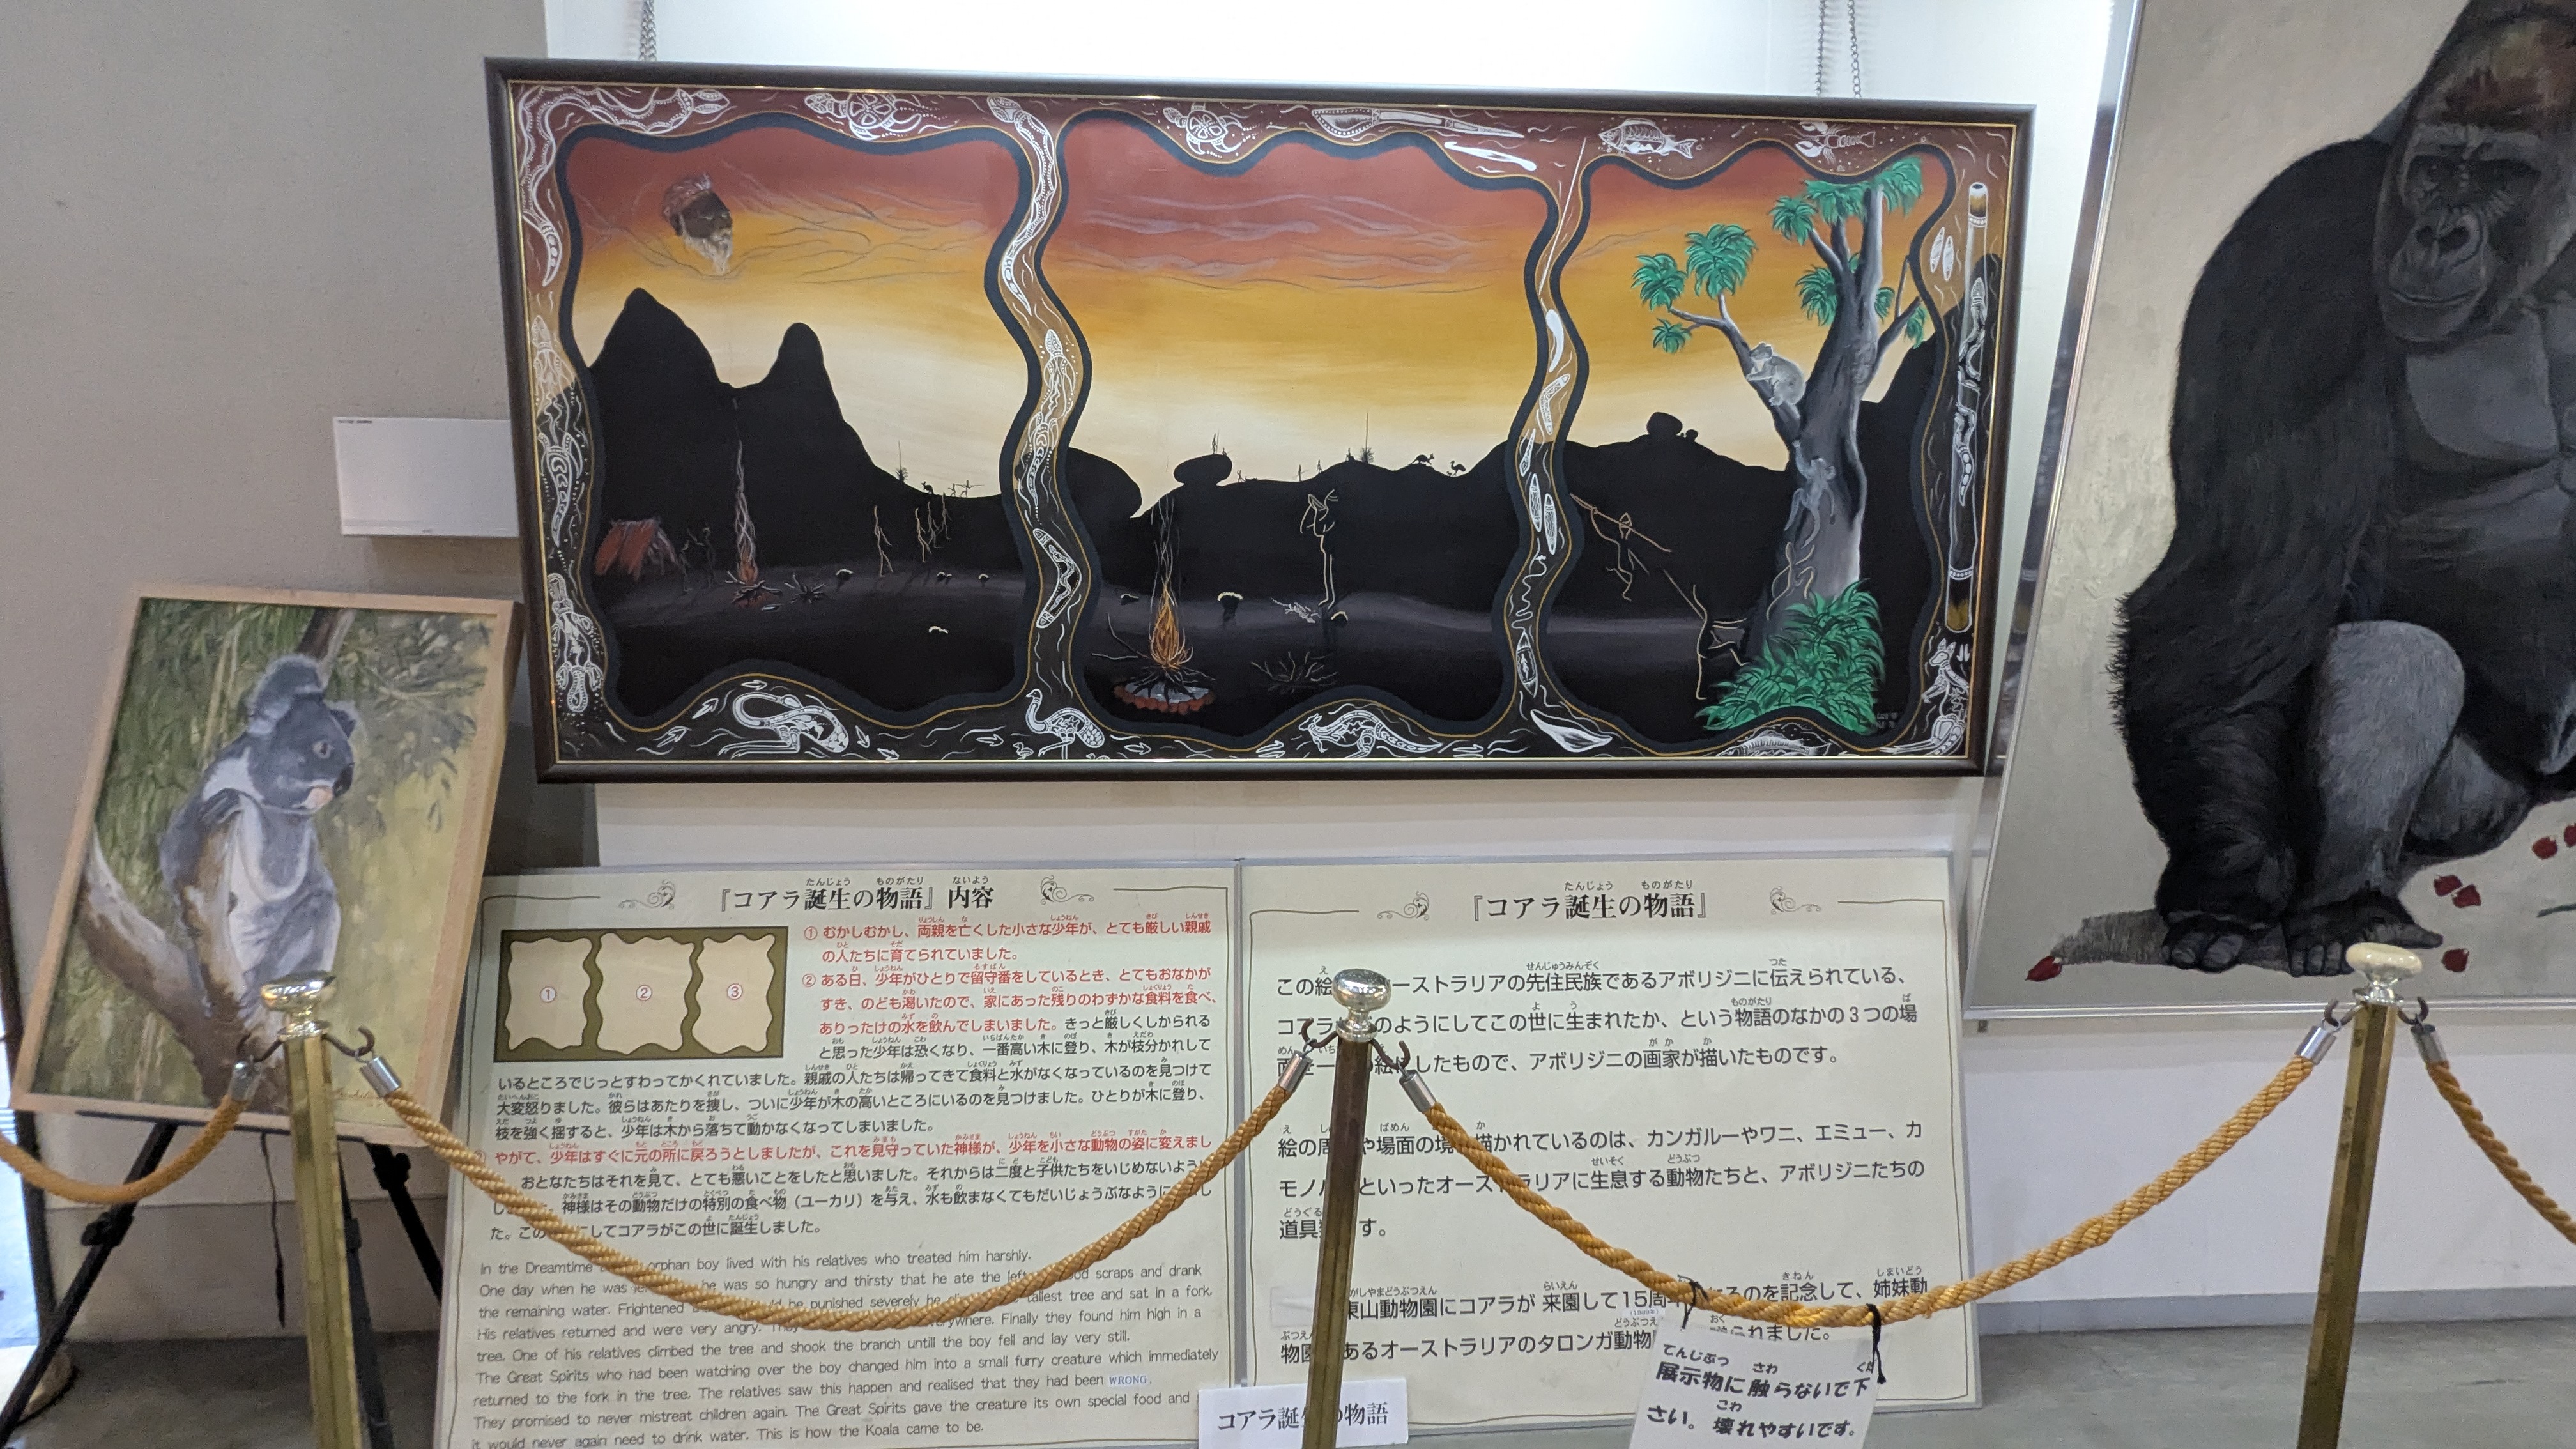 『コアラ誕生の物語』内容
① ② ③
① むかしむかし、両親を亡くした小さな少年が、とても厳しい親戚
の人たちに育てられていました。
② ある日、少年がひとりで留守番をしているとき、とてもおなかが
すき、のども渇いたので、家にあった残りのわずかな食料を食べ、
ありったけの水を飲んでしまいました。きっと厳しくしかられる
と思った少年は恐くなり、一番高い木に登り、木が枝分かれして
いるところでじっとすわってかくれていました。親戚の人たちは帰ってきて食料と水がなくなっているのを見つけて
大変怒りました。彼らはあたりを捜し、ついに少年が木の高いところにいるのを見つけました。ひとりが木に登り、
枝を強く揺すると、少年は木から落ちて動かなくなってしまいました。
やがて、少年はすぐに元の所に戻ろうとしましたが、これを見守っていた神様が、少年を小さな動物の姿に変えまし
おとなたちはそれを見て、とても悪いことをしたと思いました。それからは二度と子供たちをいじめないよう
し 神様はその動物だけの特別の食べ物（ユーカリ）を与え、水も飲まなくてもだいじょうぶなように し
た。この にしてコアラがこの世に誕生しました。
In the Dreamtime orphan boy lived with his relatives who treated him harshly.
One day when he was he was so hungry and thirsty that he ate the scraps and drank
the remaining water. Frightened be punished severely he tallest tree and sat in a fork.
His relatives returned and were very angry. Finally they found him high in a
tree. One of his relatives climbed the tree and shook the branch untill the boy fell and lay very still.
The Great Spirits who had been watching over the boy changed him into a small furry creature which immediately
returned to the fork in the tree. The relatives saw this happen and realised that they had been WRONG.
They promised to never mistreat children again. The Great Spirits gave the creature its own special food and
it would never again need to drink water. This is how the Koala came to be.
『コアラ誕生の物語』
この絵 ーストラリアの先住民族であるアボリジニに伝えられている、
コアラ のようにしてこの世に生まれたか、という物語のなかの３つの場
面を一 絵にしたもので、アボリジニの画家が描いたものです。
絵の周 や場面の境 描かれているのは、カンガルーやワニ、エミュー、カ
モノハ といったオーストラリアに生息する動物たちと、アボリジニたちの
道具 す。
東山動物園にコアラが来園して15周 るのを記念して、姉妹動
物園 あるオーストラリアのタロンガ動物 られました。
コアラ誕 の物語
展示物に触らないで下
さい。壊れやすいです。